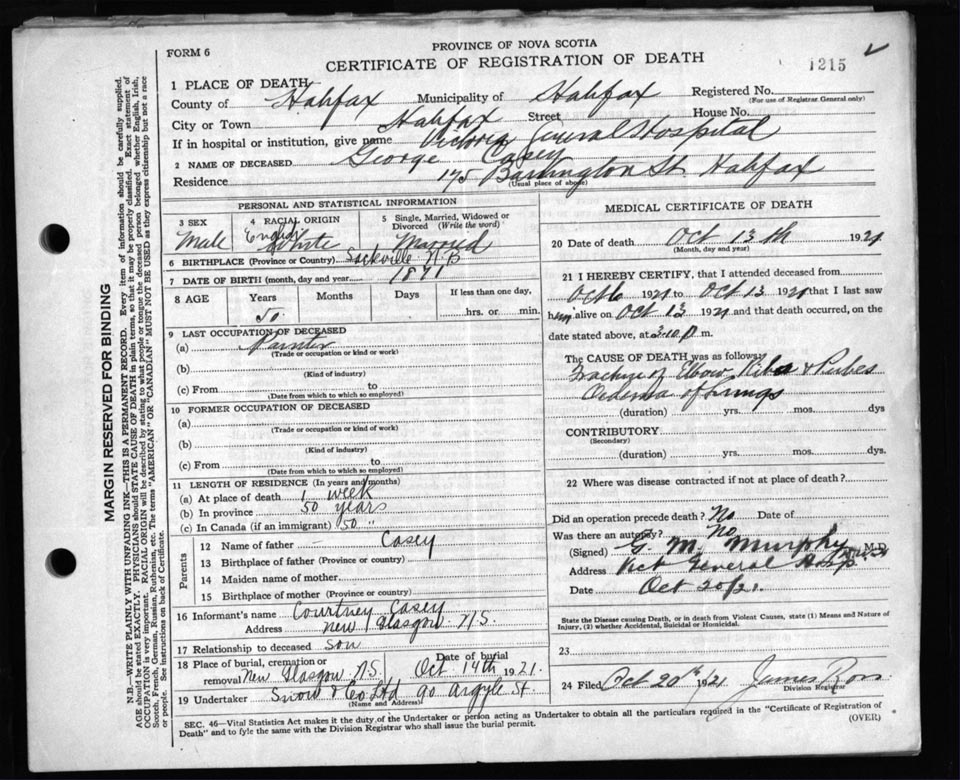 FORM 6
PROVINCE OF NOVA SCOTIA
CERTIFICATE OF REGISTRATION OF DEATH
1215
1 PLACE OF DEATH
County of Halifax Municipality of Halifax Registered No.
(For use of Registrar General only)
City or Town Halifax Street House No.
If in hospital or institution, give name Victoria General Hospital
2 NAME OF DECEASED George Casey
Residence 175 Barrington St Halifax
(Usual place of abode)
PERSONAL AND STATISTICAL INFORMATION
3 SEX
Male
4 RACIAL ORIGIN
English
White
5 Single, Married, Widowed or Divorced (Write the word)
Married
6 BIRTHPLACE (Province or Country) Sackville N.B
7 DATE OF BIRTH (month, day and year) 1871
8 AGE
Years Months Days If less than one day,
50 hrs. or min.
9 LAST OCCUPATION OF DECEASED
(a) Painter
(Trade or occupation or kind or work)
(b)
(Kind of industry)
(c) From to
(Date from which to which so employed)
10 FORMER OCCUPATION OF DECEASED
(a)
(Trade or occupation or kind of work)
(b)
(Kind of industry)
(c) From to
(Date from which to which so employed)
11 LENGTH OF RESIDENCE (In years and months)
(a) At place of death 1 week
(b) In province 50 years
(c) In Canada (if an immigrant) 50 "
Parents
12 Name of father – Casey
13 Birthplace of father (Province or country)
14 Maiden name of mother
15 Birthplace of mother (Province or country)
16 Informant's name Courtney Casey
Address New Glasgow N.S.
17 Relationship to deceased son
18 Place of burial, cremation or removal New Glasgow N.S. Date of burial Oct 14th 1921.
19 Undertaker Snow & Co Ltd 90 Argyle St.
(Name and Address)
MEDICAL CERTIFICATE OF DEATH
20 Date of death Oct 13th 1921
(Month, day and year)
21 I HEREBY CERTIFY, that I attended deceased from
Oct 6 1921 to Oct 13 1921 that I last saw
him alive on Oct 13 1921 and that death occurred, on the
date stated above, at 3.10 p m.
The CAUSE OF DEATH was as follows:
Fracture of Elbow Ribs & Pubes
Oedema of Lungs
(duration) yrs. mos. dys
CONTRIBUTORY
(Secondary)
(duration) yrs. mos. dys.
22 Where was disease contracted if not at place of death?
Did an operation precede death? No Date of
Was there an autopsy? No
(Signed) G. M. Murphy M.D.
Address Vict General Hosp
Date Oct 20/21.
State the Disease causing Death, or in death from Violent Causes, state (1) Means and Nature of Injury, (2) whether Accidental, Suicidal or Homicidal.
23
24 Filed Oct 20th 1921 James Ross
Division Registrar
SEC. 46—Vital Statistics Act makes it the duty of the Undertaker or person acting as Undertaker to obtain all the particulars required in the "Certificate of Registration of
Death" and to fyle the same with the Division Registrar who shall issue the burial permit. (OVER)
MARGIN RESERVED FOR BINDING
N.B.—WRITE PLAINLY WITH UNFADING INK—THIS IS A PERMANENT RECORD. Every item of information should be carefully supplied.
AGE should be stated EXACTLY. PHYSICIANS should STATE CAUSE OF DEATH in plain terms, so that it may be properly classified. Exact statement of
OCCUPATION is very important. RACIAL ORIGIN will be described by stating to what people or tongue the deceased person belonged whether English, Irish,
Scotch, French, German, Russian, Ruthenian, etc. The terms "AMERICAN" or "CANADIAN" MUST NOT BE USED as they express citizenship but not a race
or people. See instructions on back of Certificate.